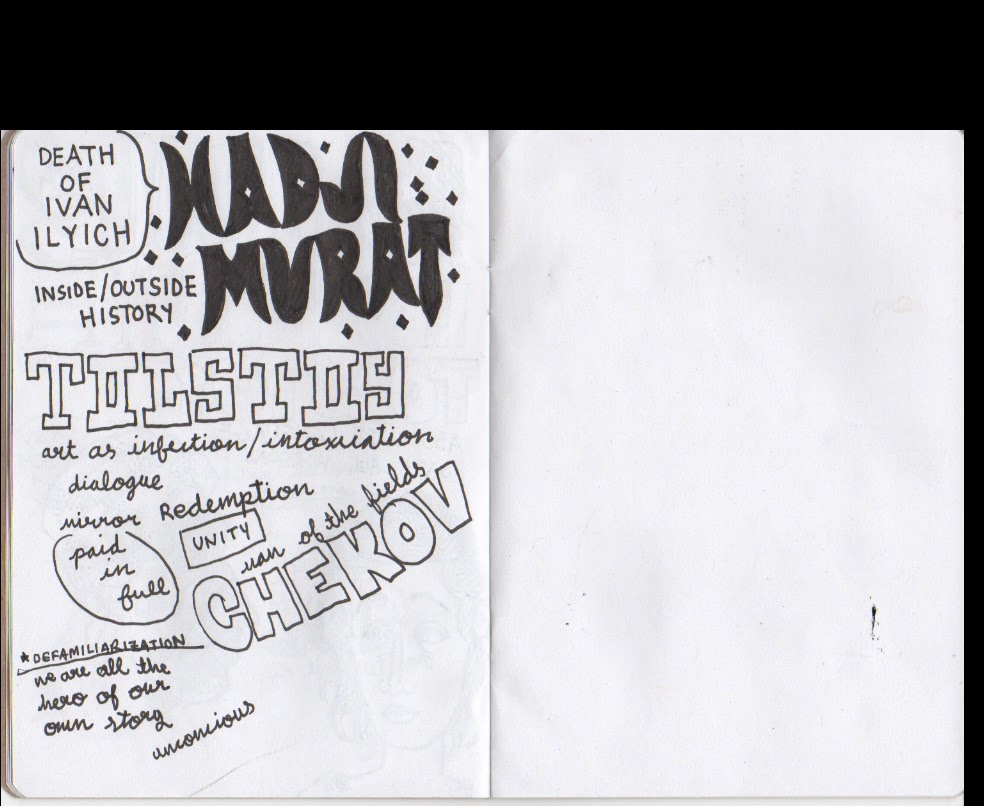 DEATH
OF
IVAN
ILYICH
HADJI
MURAT
INSIDE/OUTSIDE
HISTORY
TOLSTOY
art as infection/intoxiciation
dialogue
mirror
Redemption
paid
in
full
UNITY
of the fields
CHEKOV
*DEFAMILIARIZATION
we are all the
hero of our
own story
unconcious